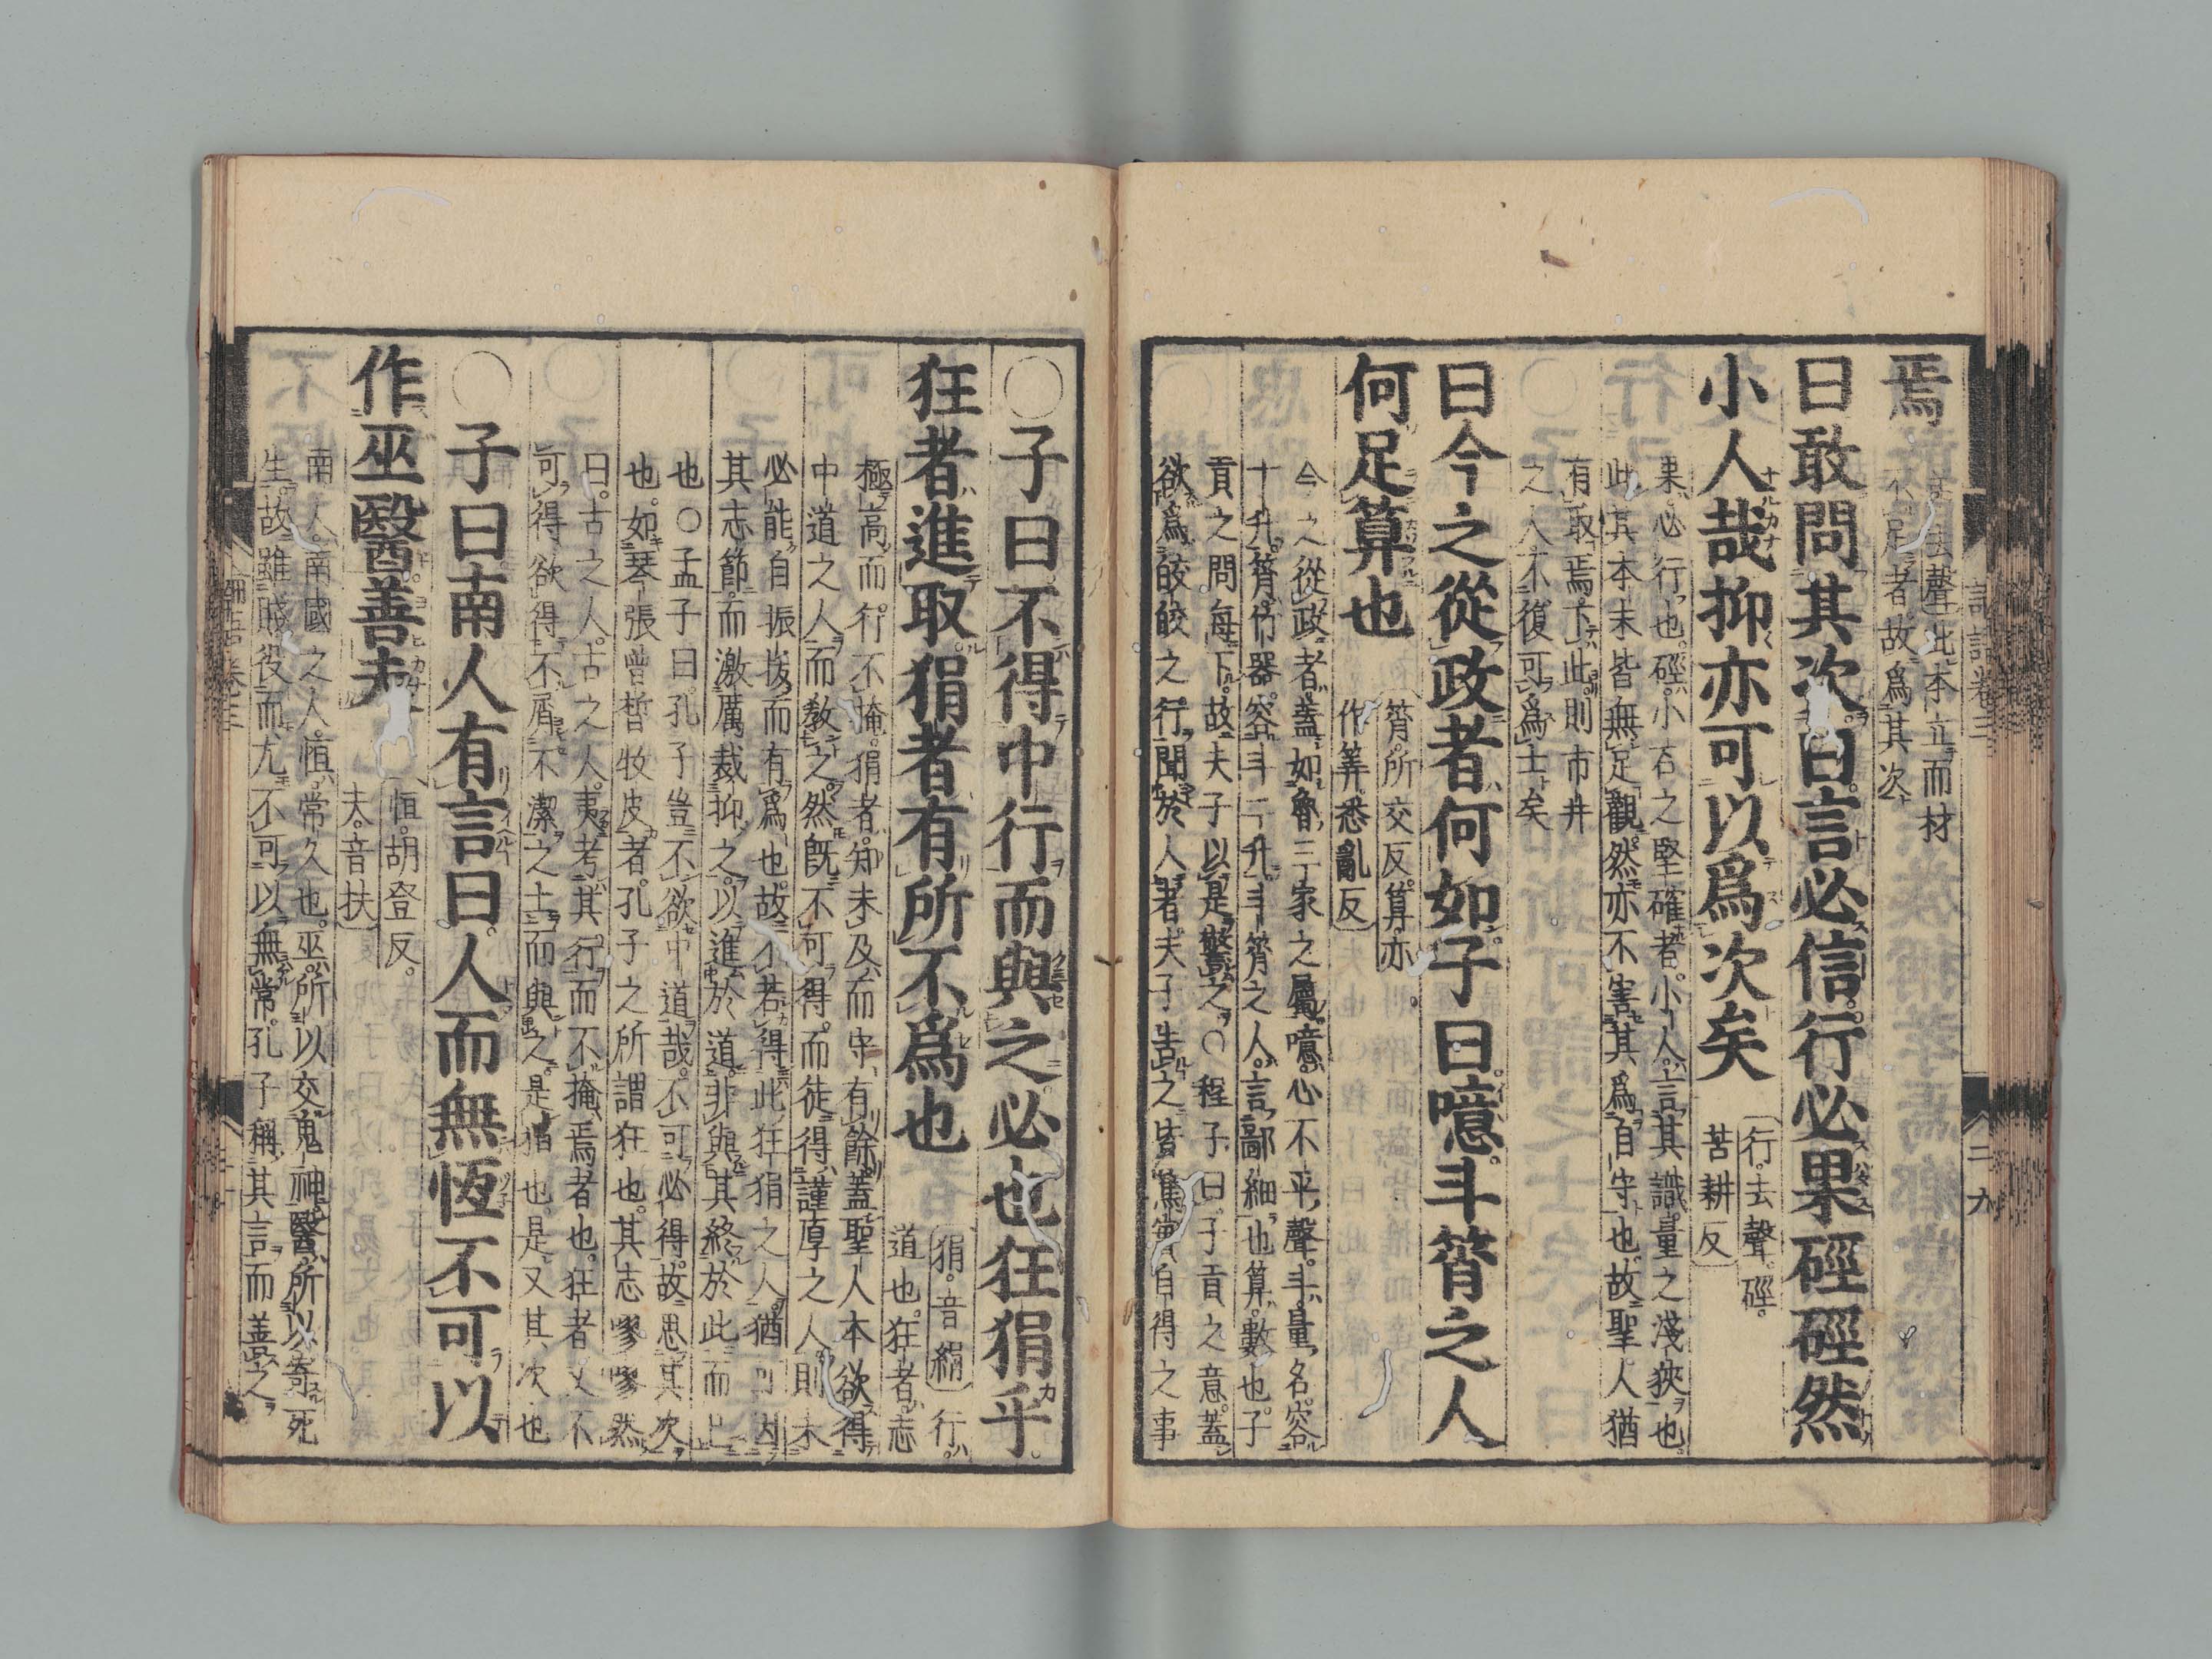 焉
去聲此本立而材
不足者故爲其次
曰敢問其次曰言必信行必果硜硜然
小人哉抑亦可以爲次矣
行去聲硜
苦耕反
果必行也硜小石之堅確者小人言其識量之淺狹也
此其本末皆無足觀然亦不害其爲自守也故聖人猶
有取焉下此則市井
之人不復可爲士矣
曰今之從政者何如子曰噫斗筲之人
何足算也
筲所交反算亦
作筭悉亂反
今之從政者蓋如魯三家之屬噫心不平聲斗量名容
十升筲竹器容斗二升斗筲之人言鄙細也算數也子
貢之問每下故夫子以是警之○程子曰子貢之意蓋
欲爲皎皎之行聞於人者夫子告之皆篤實自得之事
○子曰不得中行而與之必也狂狷乎
狂者進取狷者有所不爲也
狷音絹行
道也狂者志
極高而行不掩狷者知未及而守有餘蓋聖人本欲得
中道之人而敎之然既不可得而徒得謹厚之人則未
必能自振拔而有爲也故不若得此狂狷之人猶可因
其志節而激厲裁抑之以進於道非與其終於此而已
也○孟子曰孔子豈不欲中道哉不可必得故思其次
也如琴張曾皙牧皮者孔子之所謂狂也其志嘐嘐然
曰古之人古之人夷考其行而不掩焉者也狂者又不
可得欲得不屑不潔之士而與之是狷也是又其次也
○子曰南人有言曰人而無恆不可以
作巫醫善夫
恒胡登反
夫音扶
南人南國之人恒常久也巫所以交鬼神醫所以寄死
生故雖賤役而尤不可以無常孔子稱其言而善之